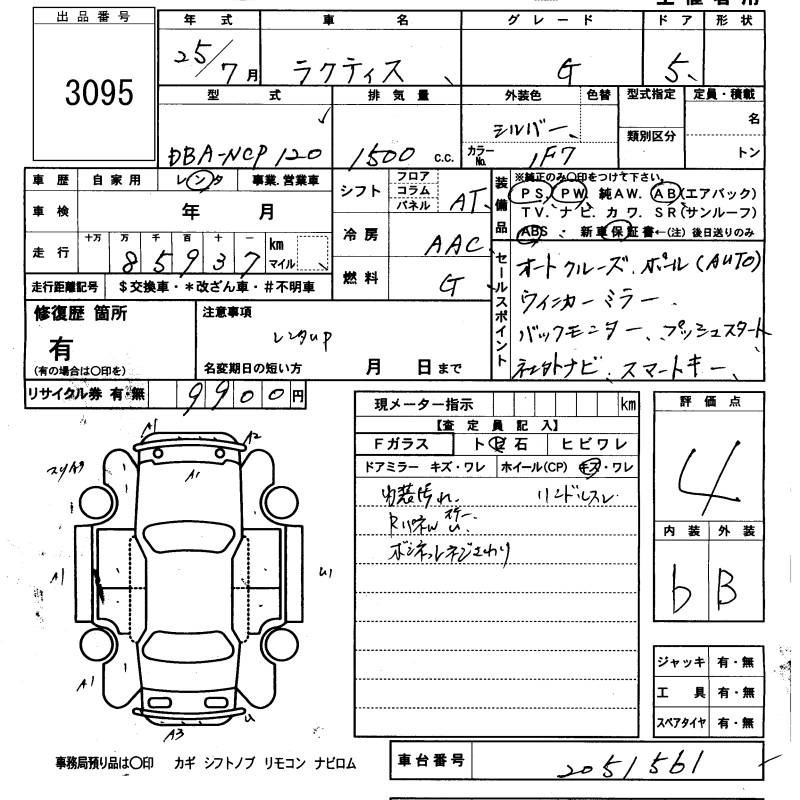 出品番号 3095
年式 車名 グレード ドア 形状
25/7月 ラクティス G 5
型式 排気量 外装色 色替 型式指定 定員・積載
DBA-NCP120 1500 c.c. シルバー 類別区分 名
カラーNo. 1F7 トン
車歴 自家用 レンタ 事業.営業車
車検 年 月
走行 十万 万 千 百 十 一 km マイル
85937
走行距離記号 $交換車・*改ざん車・#不明車
シフト フロア コラム パネル AT
冷房 AAC
燃料 G
装備品 ※純正のみ〇印をつけて下さい。
PS、PW 純AW. AB(エアバック)
TV. ナビ. カワ. SR(サンルーフ)
ABS、 新車保証書←(注)後日送りのみ
セールスポイント オートクルーズ.
(AUTO)
ウィンカーミラー.
バックモニター、プッシュスタート
社外ナビ、スマートキー、
修復歴 箇所 有 (有の場合は〇印を)
注意事項
レンタup
名変期日の短い方 月 日まで
リサイクル券 有・無 9900円
現メーター指示 km
【査定員記入】
Fガラス ト ビ 石 ヒビワレ
ドアミラー キズ・ワレ ホイール(CP) キズ・ワレ
内装汚れ. リンドルスレ
Rパネル
ボンネットネジさわり
評価点
4
内装 外装
b B
ジャッキ 有・無
工具 有・無
スペアタイヤ 有・無
A1 A2
スリA9 A1
A1 U1
A1 A3 U
事務局預り品は〇印 カギ シフトノブ リモコン ナビロム
車台番号 2051561